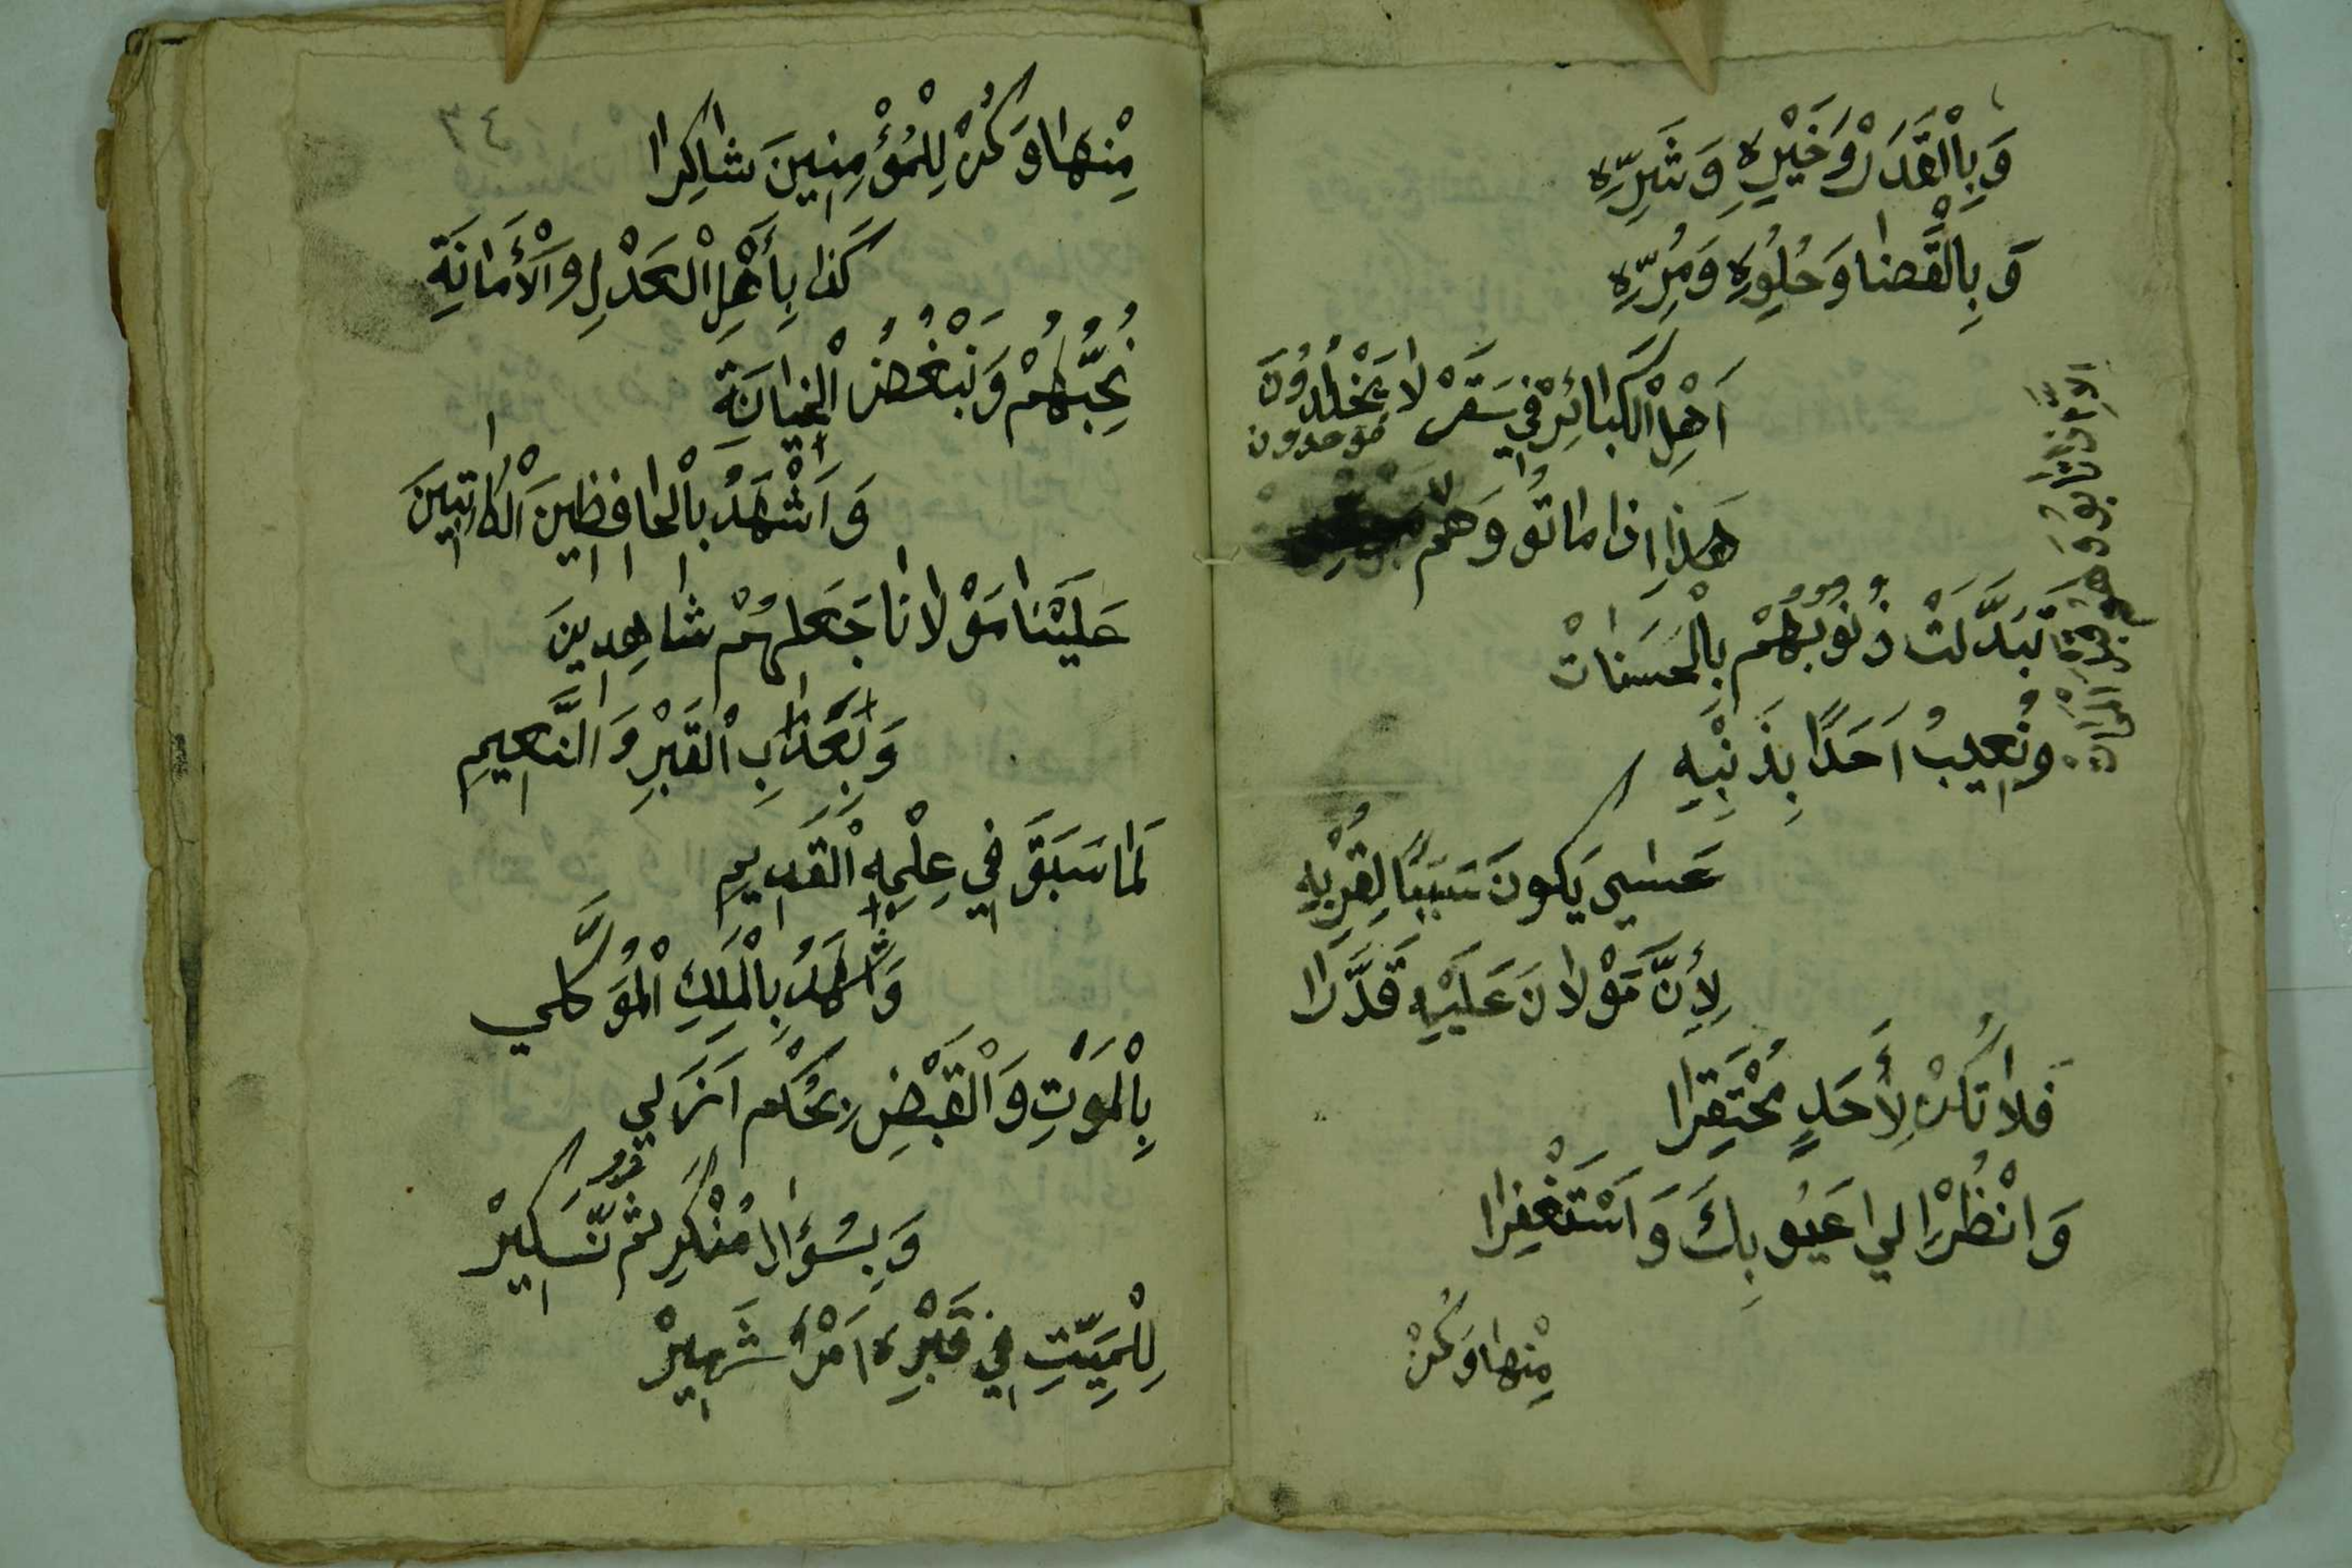 وَبِاْالقَدَرْ وَخَيْرِهِ وَشَرِّهِ
وَبِالْقَضَا وَحُلُوِهِ وَمُرِّهِ
اَهْلِ اْلكَبَائِرْ فِي سَقَرْ لَا يَخْلُدُونَ
هَذَا اِذَا مَاتُوا وَهُمْ
موحدون
اِلَّا اِذَا تَابُو وَ
تَبَدَّلَتْ ذُنُوبُهُمْ بِالْحَسَنَاتْ
وِنُعِيبُ اَحَدًا بِذَنْبِهِ
عَسَىي يَكُونَ سَبَبًا لِقُرْبِهِ
لِأَنَّ مَوْلَانَ عَلَيْهِ قَدَّرَا
فَلَا تَكُنْ لِأَحَدٍ مُحْتَقِرَا
وَانْظُرْ اِلي عَيُوبِكَ وَاَسْتَغْفِرَا
مِنْهَا وَكُنْ
٤٦
مِنْهَا وَكُنْ لِلْمُؤْمِنِينَ شَاكِرَا
كَذَا بِأَهْلِ الْعَدْلِ وَالْأَمَانَةِ
نُحِبُّهُمْ وَنَبْغُضُ الْخِيَانَةَ
وَاَشْهَدُ بِاْلحَافِظِينَ اْلكَاتِبِينَ
عَلَيْنَا مَوْلَانَا جَعَلَهُمْ شَاهِدِينَ
وَبِعَذَابِ اْلقَبْرِ وَالنَّعِيمِ
لَمَا سَبَقَ فِي عِلْمِهِ اْلقَدِيمِ
وَاَشْهَدُ بِالْمَلَكِ الْمُوَكَّلِي
بِاْلمَوْتِ وَاْلقَبْضِ بِحُكْمِ اَزَلِي
وَبِسُؤَالِ مُنْكَرِ ثُمَّ نَكِيرْ
لِلْمَيِّتِ فِي قَبْرِهِ اَمْرٌ شَهِيرْ